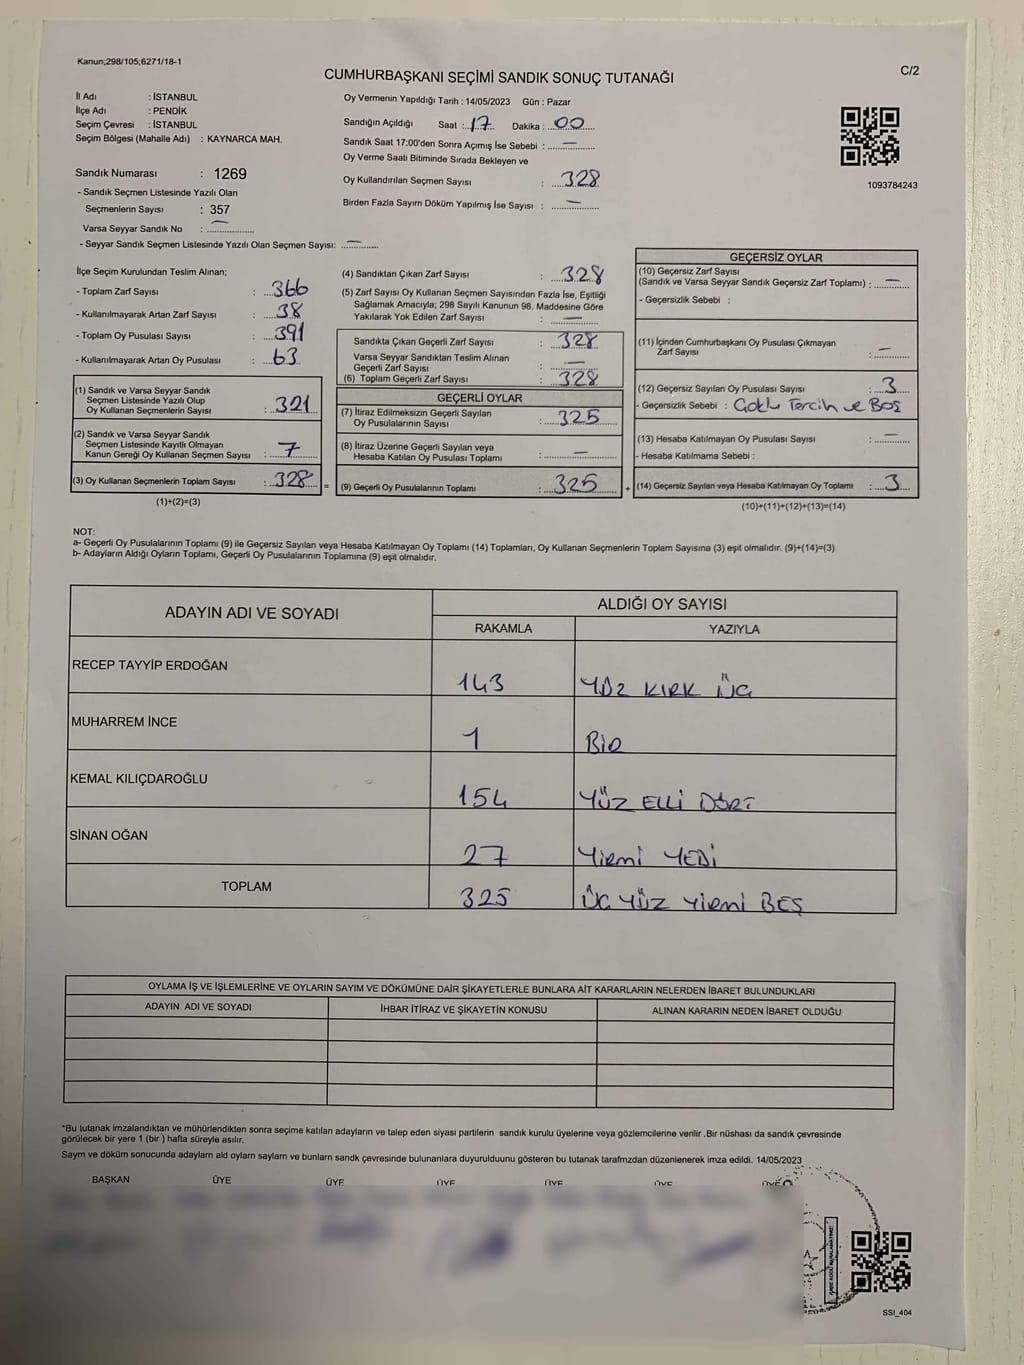 Kanun;298/105;6271/18-1
CUMHURBAŞKANI SEÇİMİ SANDIK SONUÇ TUTANAĞI
C/2
İl Adı : İSTANBUL
İlçe Adı : PENDİK
Seçim Çevresi : İSTANBUL
Seçim Bölgesi (Mahalle Adı) : KAYNARCA MAH.
Oy Vermenin Yapıldığı Tarih : 14/05/2023 Gün : Pazar
Sandığın Açıldığı Saat : 17 Dakika : 00
Sandık Saat 17:00'den Sonra Açımış İse Sebebi : —
Oy Verme Saati Bitiminde Sırada Bekleyen ve
Oy Kullandırılan Seçmen Sayısı : 328
Birden Fazla Sayım Döküm Yapılmış İse Sayısı : —
1093784243
Sandık Numarası : 1269
- Sandık Seçmen Listesinde Yazılı Olan
Seçmenlerin Sayısı : 357
Varsa Seyyar Sandık No : —
- Seyyar Sandık Seçmen Listesinde Yazılı Olan Seçmen Sayısı: —
İlçe Seçim Kurulundan Teslim Alınan;
- Toplam Zarf Sayısı : 366
- Kullanılmayarak Artan Zarf Sayısı : 38
- Toplam Oy Pusulası Sayısı : 391
- Kullanılmayarak Artan Oy Pusulası : 63
(1) Sandık ve Varsa Seyyar Sandık
Seçmen Listesinde Yazılı Olup
Oy Kullanan Seçmenlerin Sayısı : 321
(2) Sandık ve Varsa Seyyar Sandık
Seçmen Listesinde Kayıtlı Olmayan
Kanun Gereği Oy Kullanan Seçmen Sayısı : 7
(3) Oy Kullanan Seçmenlerin Toplam Sayısı : 328 =
(1)+(2)=(3)
(4) Sandıktan Çıkan Zarf Sayısı : 328
(5) Zarf Sayısı Oy Kullanan Seçmen Sayısından Fazla İse, Eşitliği
Sağlamak Amacıyla; 298 Sayılı Kanunun 98. Maddesine Göre
Yakılarak Yok Edilen Zarf Sayısı : —
Sandıkta Çıkan Geçerli Zarf Sayısı : 328
Varsa Seyyar Sandıktan Teslim Alınan
Geçerli Zarf Sayısı : —
(6) Toplam Geçerli Zarf Sayısı : 328
GEÇERLİ OYLAR
(7) İtiraz Edilmeksizin Geçerli Sayılan
Oy Pusulalarının Sayısı : 325
(8) İtiraz Üzerine Geçerli Sayılan veya
Hesaba Katılan Oy Pusulası Toplamı : —
(9) Geçerli Oy Pusulalarının Toplamı : 325 +
GEÇERSİZ OYLAR
(10) Geçersiz Zarf Sayısı
(Sandık ve Varsa Seyyar Sandık Geçersiz Zarf Toplamı) : —
- Geçersizlik Sebebi :
(11) İçinden Cumhurbaşkanı Oy Pusulası Çıkmayan
Zarf Sayısı : —
(12) Geçersiz Sayılan Oy Pusulası Sayısı : 3
- Geçersizlik Sebebi : Çoklu Tercih ve Boş
(13) Hesaba Katılmayan Oy Pusulası Sayısı : —
- Hesaba Katılmama Sebebi :
(14) Geçersiz Sayılan veya Hesaba Katılmayan Oy Toplamı : 3
(10)+(11)+(12)+(13)=(14)
NOT:
a- Geçerli Oy Pusulalarının Toplamı (9) ile Geçersiz Sayılan veya Hesaba Katılmayan Oy Toplamı (14) Toplamları, Oy Kullanan Seçmenlerin Toplam Sayısına (3) eşit olmalıdır. (9)+(14)=(3)
b- Adayların Aldığı Oyların Toplamı, Geçerli Oy Pusulalarının Toplamına (9) eşit olmalıdır.
ADAYIN ADI VE SOYADI ALDIĞI OY SAYISI
RAKAMLA YAZIYLA
RECEP TAYYİP ERDOĞAN 143 YÜZ KIRK ÜÇ
MUHARREM İNCE 1 BİR
KEMAL KILIÇDAROĞLU 154 YÜZ ELLİ DÖRT
SİNAN OĞAN 27 YİRMİ YEDİ
TOPLAM 325 ÜÇ YÜZ YİRMİ BEŞ
OYLAMA İŞ VE İŞLEMLERİNE VE OYLARIN SAYIM VE DÖKÜMÜNE DAİR ŞİKAYETLERLE BUNLARA AİT KARARLARIN NELERDEN İBARET BULUNDUKLARI
ADAYIN ADI VE SOYADI İHBAR İTİRAZ VE ŞİKAYETİN KONUSU ALINAN KARARIN NEDEN İBARET OLDUĞU
*Bu tutanak imzalandıktan ve mühürlendikten sonra seçime katılan adayların ve talep eden siyasi partilerin sandık kurulu üyelerine veya gözlemcilerine verilir .Bir nüshası da sandık çevresinde
görülecek bir yere 1 (bir ) hafta süreyle asılır.
Sayım ve döküm sonucunda adaylarn ald oylarn saylarn ve bunlarn sandk çevresinde bulunanlara duyurulduunu gösteren bu tutanak tarafmzdan düzenlenerek imza edildi. 14/05/2023
BAŞKAN ÜYE ÜYE ÜYE ÜYE ÜYE ÜYE
SSI_404